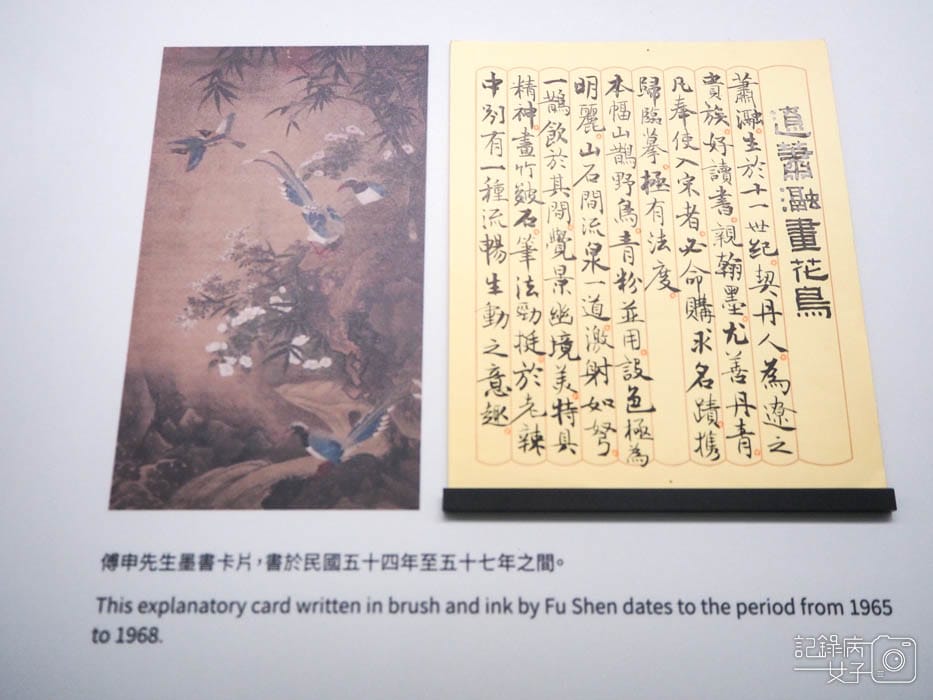 遼蕭瀜畫花鳥
蕭瀜生於十一世紀契丹人為遼之
貴族好讀書親翰墨尤善丹青
凡奉使入宋者必命購求名蹟携
歸臨摹極有法度
本幅山鵲野鳥青粉並用設色極為
明麗山石間流泉一道激射如弩
一鵲飲於其間覺景幽境美特具
精神畫竹皴石筆法勁挺於老辣
中別有一種流暢生動之意趣
傅申先生墨書卡片,書於民國五十四年至五十七年之間。
This explanatory card written in brush and ink by Fu Shen dates to the period from 1965
to 1968.
記錄病
女子